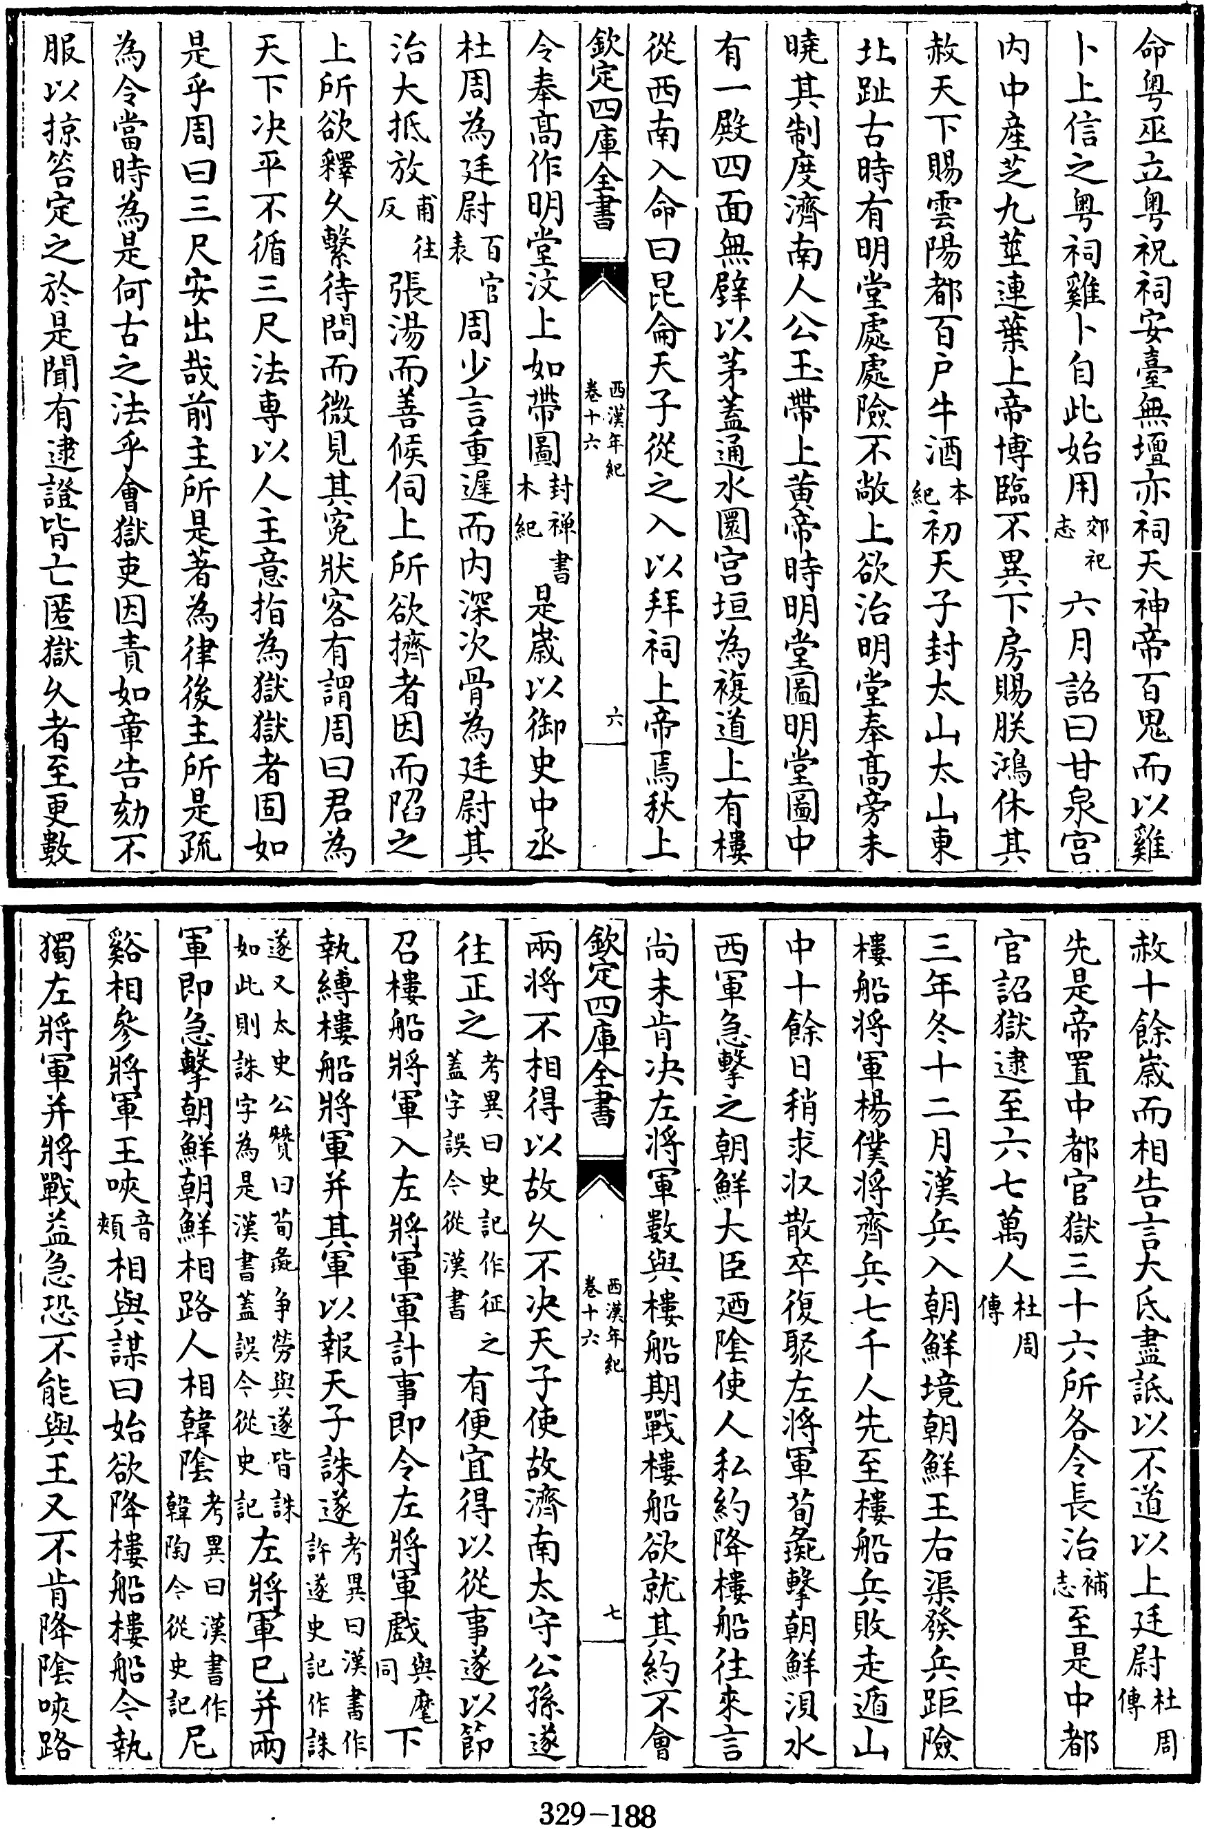 命粤巫立粤祝祠安臺無壇亦祠天神帝百鬼而以雞
卜上信之粤祠雞卜自此始用郊祀志六月詔曰甘泉宫
内中産芝九莖連葉上帝博臨不異下房賜朕鴻休其
赦天下賜雲陽都百户牛酒本紀初天子封太山太山東
北趾古時有明堂處處險不敞上欲治明堂奉高旁未
曉其制度濟南人公玉帶上黄帝時明堂圖明堂圖中
有一殿四面無壁以茅蓋通水圜宫垣為複道上有樓
從西南入命曰昆侖天子從之入以拜祠上帝焉秋上
欽定四庫全書 西漢年紀卷十六 六
令奉高作明堂汶上如帶圖封禅書本紀是嵗以御史中丞
杜周為廷尉百官表周少言重遲而内深次骨為廷尉其
治大抵放甫往反張湯而善候伺上所欲擠者因而陷之
上所欲釋久繫待問而微見其寃狀客有謂周曰君為
天下决平不循三尺法専以人主意指為獄獄者固如
是乎周曰三尺安出哉前主所是著為律後主所是疏
為令當時為是何古之法乎會獄吏因責如章告劾不
服以掠笞定之於是聞有逮證皆亡匿獄久者至更數
赦十餘嵗而相告言大氐盡詆以不道以上廷尉杜周傳
先是帝置中都官獄三十六所各令長治補志至是中都
官詔獄逮至六七萬人杜周傳
三年冬十二月漢兵入朝鮮境朝鮮王右渠發兵距險
樓船將軍楊僕將齊兵七千人先至樓船兵敗走遁山
中十餘日稍求収散卒復聚左將軍荀彘擊朝鮮浿水
西軍急擊之朝鮮大臣廼陰使人私約降樓船往來言
尚未肯决左將軍數與樓船期戰樓船欲就其約不會
欽定四庫全書 西漢年紀卷十六 七
兩將不相得以故久不决天子使故濟南太守公孫遂
往正之考異曰史記作征之蓋字誤今從漢書有便宜得以從事遂以節
召樓船將軍入左將軍軍計事即令左將軍戲與麾同下
執縛樓船將軍并其軍以報天子誅遂考異曰漢書作許遂史記作誅
遂又太史公贊曰荀彘争勞與遂皆誅如此則誅字為是漢書蓋誤今從史記左將軍已并兩
軍即急擊朝鮮朝鮮相路人相韓陰考異曰漢書作韓陶今從史記尼
谿相參將軍王唊音頰相與謀曰始欲降樓船樓船今執
獨左將軍并將戰益急恐不能與王又不肯降陰唊路
329-188